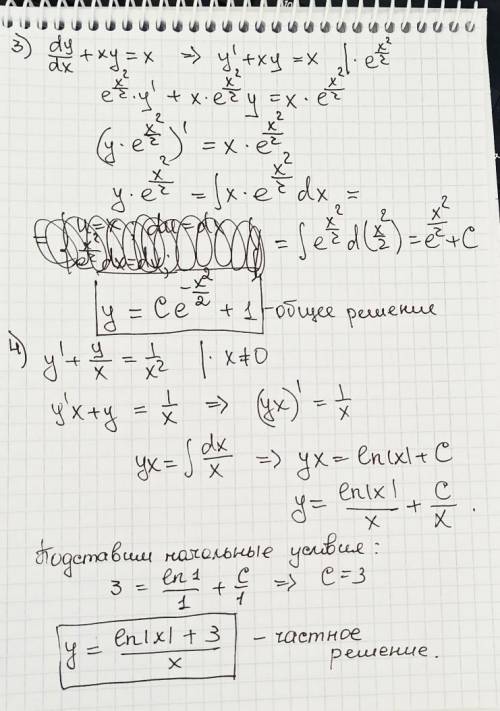 3) dy/dx + xy = x => y' + xy = x |· e^(x²/2)
e^(x²/2) · y' + x · e^(x²/2) y = x · e^(x²/2)
(y · e^(x²/2))' = x · e^(x²/2)
y · e^(x²/2) = ∫ x · e^(x²/2) dx =
= ∫ e^(x²/2) d(x²/2) = e^(x²/2) + C
y = Ce^(-x²/2) + 1 - общее решение
4) y' + y/x = 1/x² |· x ≠ 0
y'x + y = 1/x => (yx)' = 1/x
yx = ∫ dx/x => yx = ln|x| + C
y = ln|x|/x + C/x.
Подставим начальные условия:
3 = ln1/1 + C/1 => C = 3
y = (ln|x| + 3)/x - частное
решение.